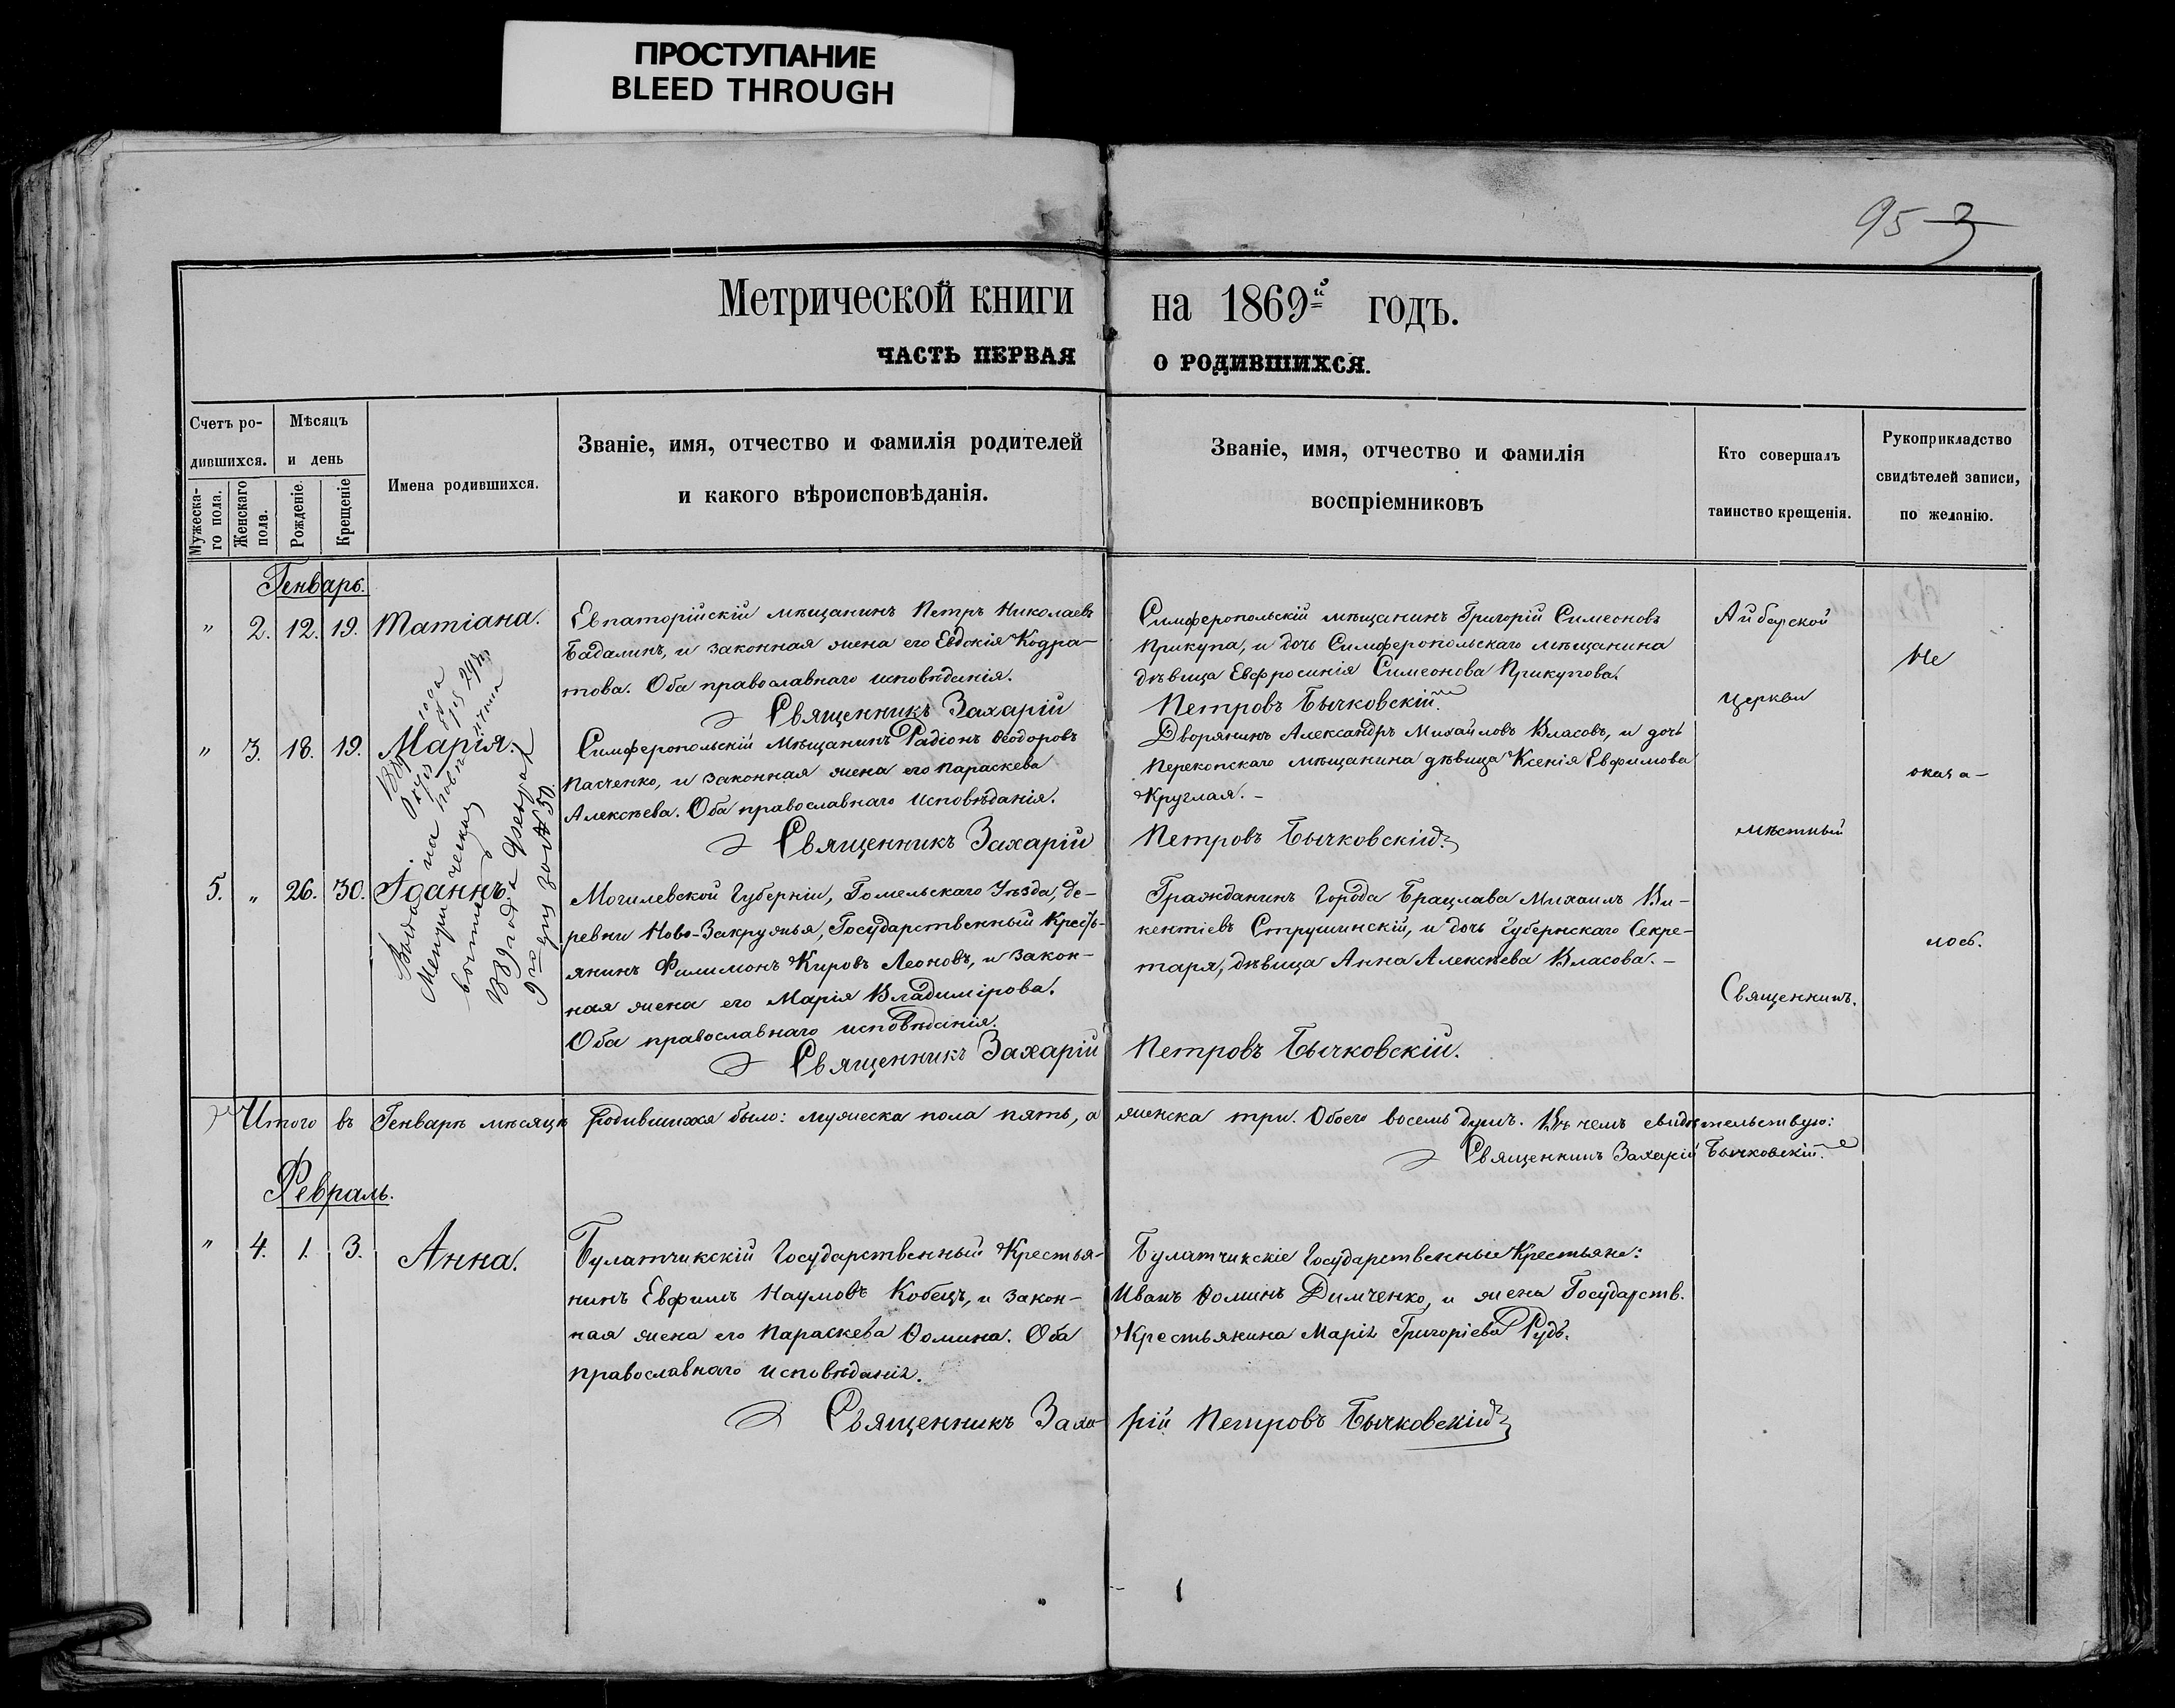 ПРОСТУПАНИЕ
BLEED THROUGH
95
Метрической книги на 1869й годъ.
ЧАСТЬ ПЕРВАЯ О РОДИВШИХСЯ.
Счетъ ро-
дившихся.
Мѣсяцъ
и день
Мужеска-
го пола.
Женскаго
пола.
Рожденіе.
Крещеніе
Имена родившихся.
Званіе, имя, отчество и фамилія родителей
и какого вѣроисповѣданія.
Званіе, имя, отчество и фамилія
воспріемниковъ
Кто совершалъ
таинство крещенія.
Рукоприкладство
свидѣтелей записи,
по желанію.
Генварь.
" 2. 12. 19. Татіана.
Евпаторійскій мѣщанинъ Петръ Николаевъ
Бадалинъ, и законная жена его Евдокія Кодра-
това. Оба православнаго исповѣданія.
Священникъ Захарій
Симферопольскій мѣщанинъ Григорій Симеоновъ
Прикупа, и дочь Симферопольскаго мѣщанина
дѣвица Евфросинія Симеонова Прикупова.
Петровъ Бычковскій.
" 3. 18. 19. Марія.
Симферопольскій Мѣщанинъ Радіонъ Ѳеодоровъ
Пасченко, и законная жена его Параскева
Алексѣева. Оба православнаго исповѣданія.
Священникъ Захарій
Дворянинъ Александръ Михайловъ Власовъ, и дочь
Перекопскаго мѣщанина дѣвица Ксенія Евфимова
Круглая. -
Петровъ Бычковскій.
5. " 26. 30. Іоаннъ.
Могилевской Губерніи, Гомельскаго Уѣзда, де-
ревни Ново-Закружья, Государственный Кресть-
янинъ Филимонъ Кировъ Леоновъ, и закон-
ная жена его Марія Владимірова.
Оба православнаго исповѣданія.
Священникъ Захарій
Гражданинъ Города Брацлава Михаилъ Ви-
кентіевъ Струшинскій, и дочь Губернскаго Секре-
таря, дѣвица Анна Алексѣева Власова. -
Петровъ Бычковскій.
Айбарской
церкви
мѣстный
Священникъ.
Не
оказа-
лось.
1889 года
на
1889 года
за № 50.
Итого въ Генварѣ мѣсяцѣ родившихся было: мужеска пола пять, а женска три. Обоего восемь душъ. Въ чемъ свидѣтельствую:
Священникъ Захарій Бычковскій.
Февраль.
" 4. 1. 3. Анна.
Булатчикскій Государственный Крестья-
нинъ Евфимъ Наумовъ Кобецъ, и закон-
ная жена его Параскева Ѳомина. Оба
православнаго исповѣданія.
Священникъ Заха-
Булатчикскіе Государственные Крестьяне:
Иванъ Ѳоминъ Димченко, и жена Государств.
Крестьянина Марія Григоріева Рудь.
рій Петровъ Бычковскій